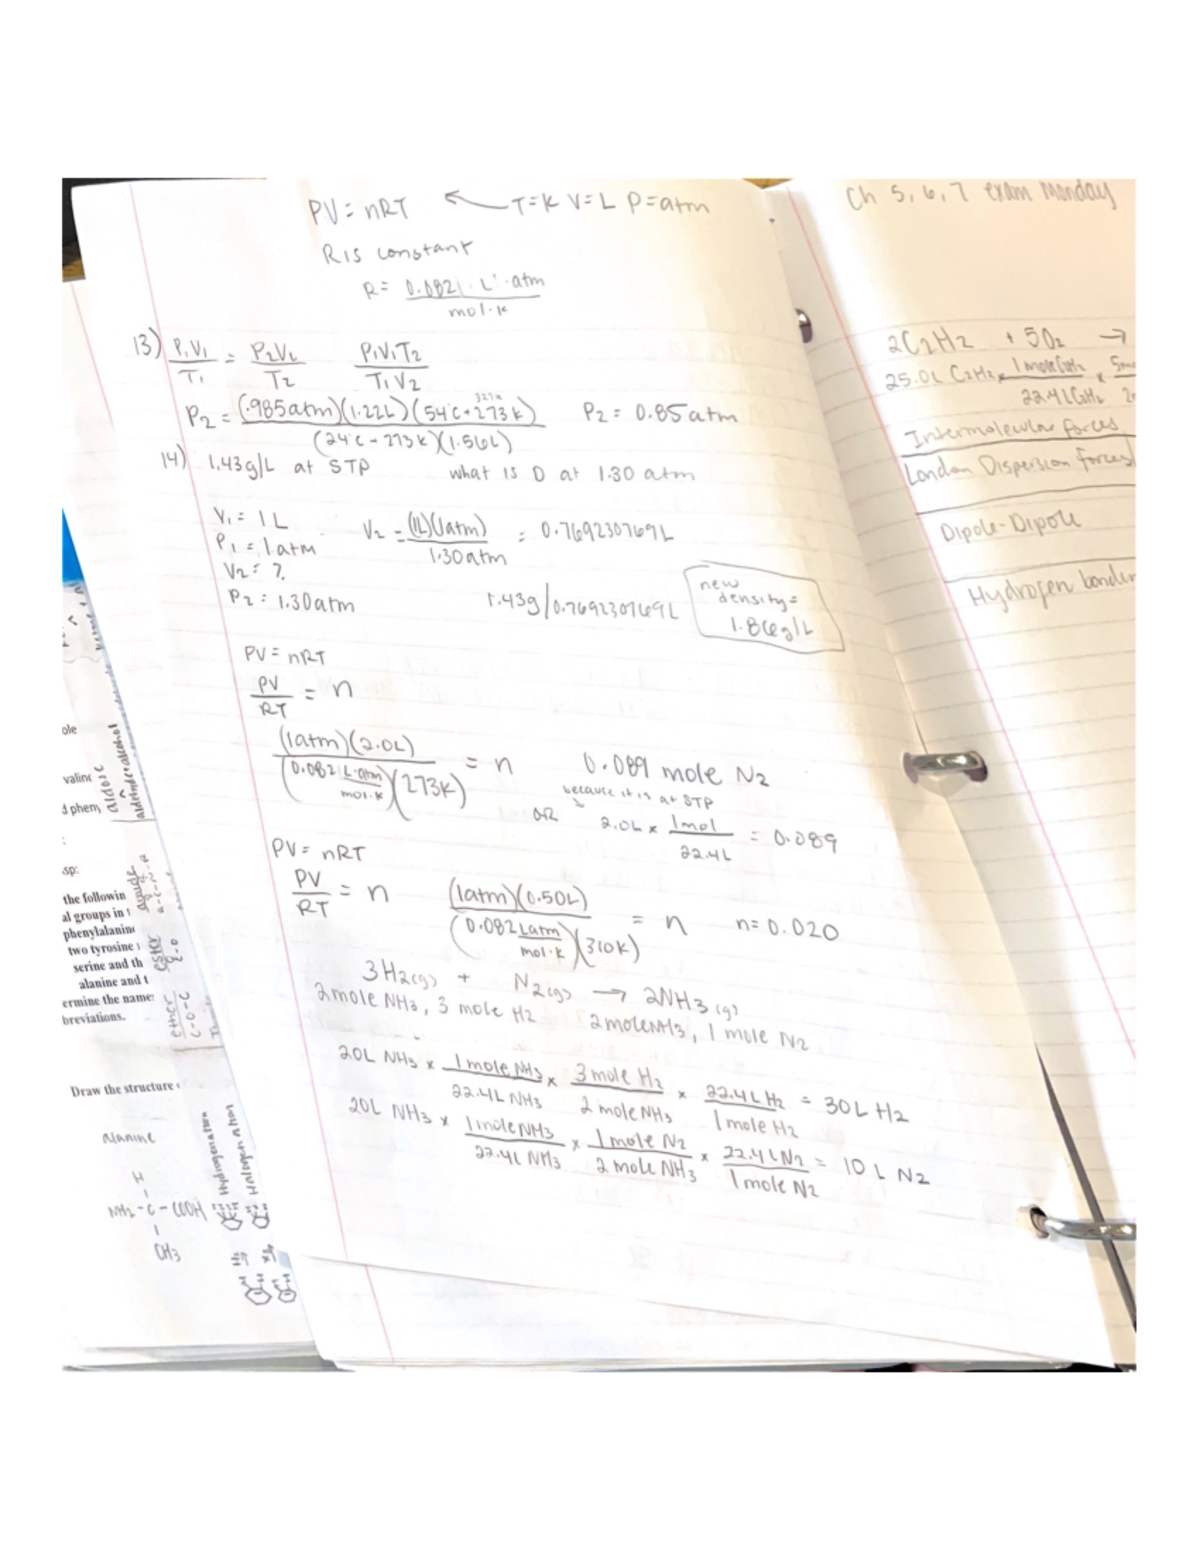 PV = nRT ← T=K V=L P=atm
R is constant
R = 0.0821 · L · atm
mol·K
13) P₁V₁/T₁ = P₂V₂/T₂ P₁V₁T₂/T₁V₂
327K
P₂ = (.985atm)(1.22L)(54°C+273K)/(24°C+273K)(1.56L) P₂ = 0.85 atm
14) 1.43g/L at STP what is D at 1.30 atm
V₁ = 1L
P₁ = 1atm
V₂ = ?
P₂ = 1.30atm
V₂ = (1L)(1atm)/1.30atm = 0.769230769L
1.43g/0.769230769L
new
density =
1.86g/L
PV = nRT
PV/RT = n
(1atm)(2.0L)/(0.0821 L·atm/mol·K)(273K) = n 0.089 mole N₂
because it is at STP
OR 2.0L × 1mol/22.4L = 0.089
PV = nRT
PV/RT = n (1atm)(0.50L)/(0.082 Latm/mol·K)(310K) = n n = 0.020
3H₂(g) + N₂(g) → 2NH₃(g)
2mole NH₃, 3 mole H₂ 2moleNH₃, 1 mole N₂
20L NH₃ × 1mole NH₃/22.4L NH₃ × 3 mole H₂/2 mole NH₃ × 22.4L H₂/1mole H₂ = 30L H₂
20L NH₃ × 1moleNH₃/22.4L NH₃ × 1mole N₂/2 mole NH₃ × 22.4LN₂/1mole N₂ = 10 L N₂
Ch 5, 6, 7 exam Monday
2C₂H₂ + 5O₂ →
25.0L C₂H₂ × 1moleC₂H₂/22.4LC₂H₂ ×
Intermolecular forces
London Dispersion forces
Dipole-Dipole
Hydrogen
ole
valine
d pheny
:
sp:
the followin
al groups in t
phenylalanine
two tyrosine
serine and th
alanine and t
ermine the names
breviations.
Draw the structure
alanine
H
NH₂-C-COOH
CH₃
aldose
amide
ester
ether
C-O-C
Hydrogenation
Halogenation